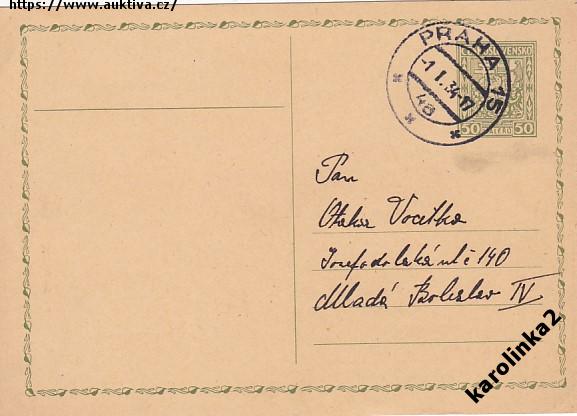 https://www.auktiva.cz/
PRAHA 15
-1.I.34-17
4a
ČESKOSLOVENSKO
50 HALÉŘŮ 50
Pan
Otakar Vocetka
Josefodolská ul č 140
Mladá Boleslav IV
karolinka2